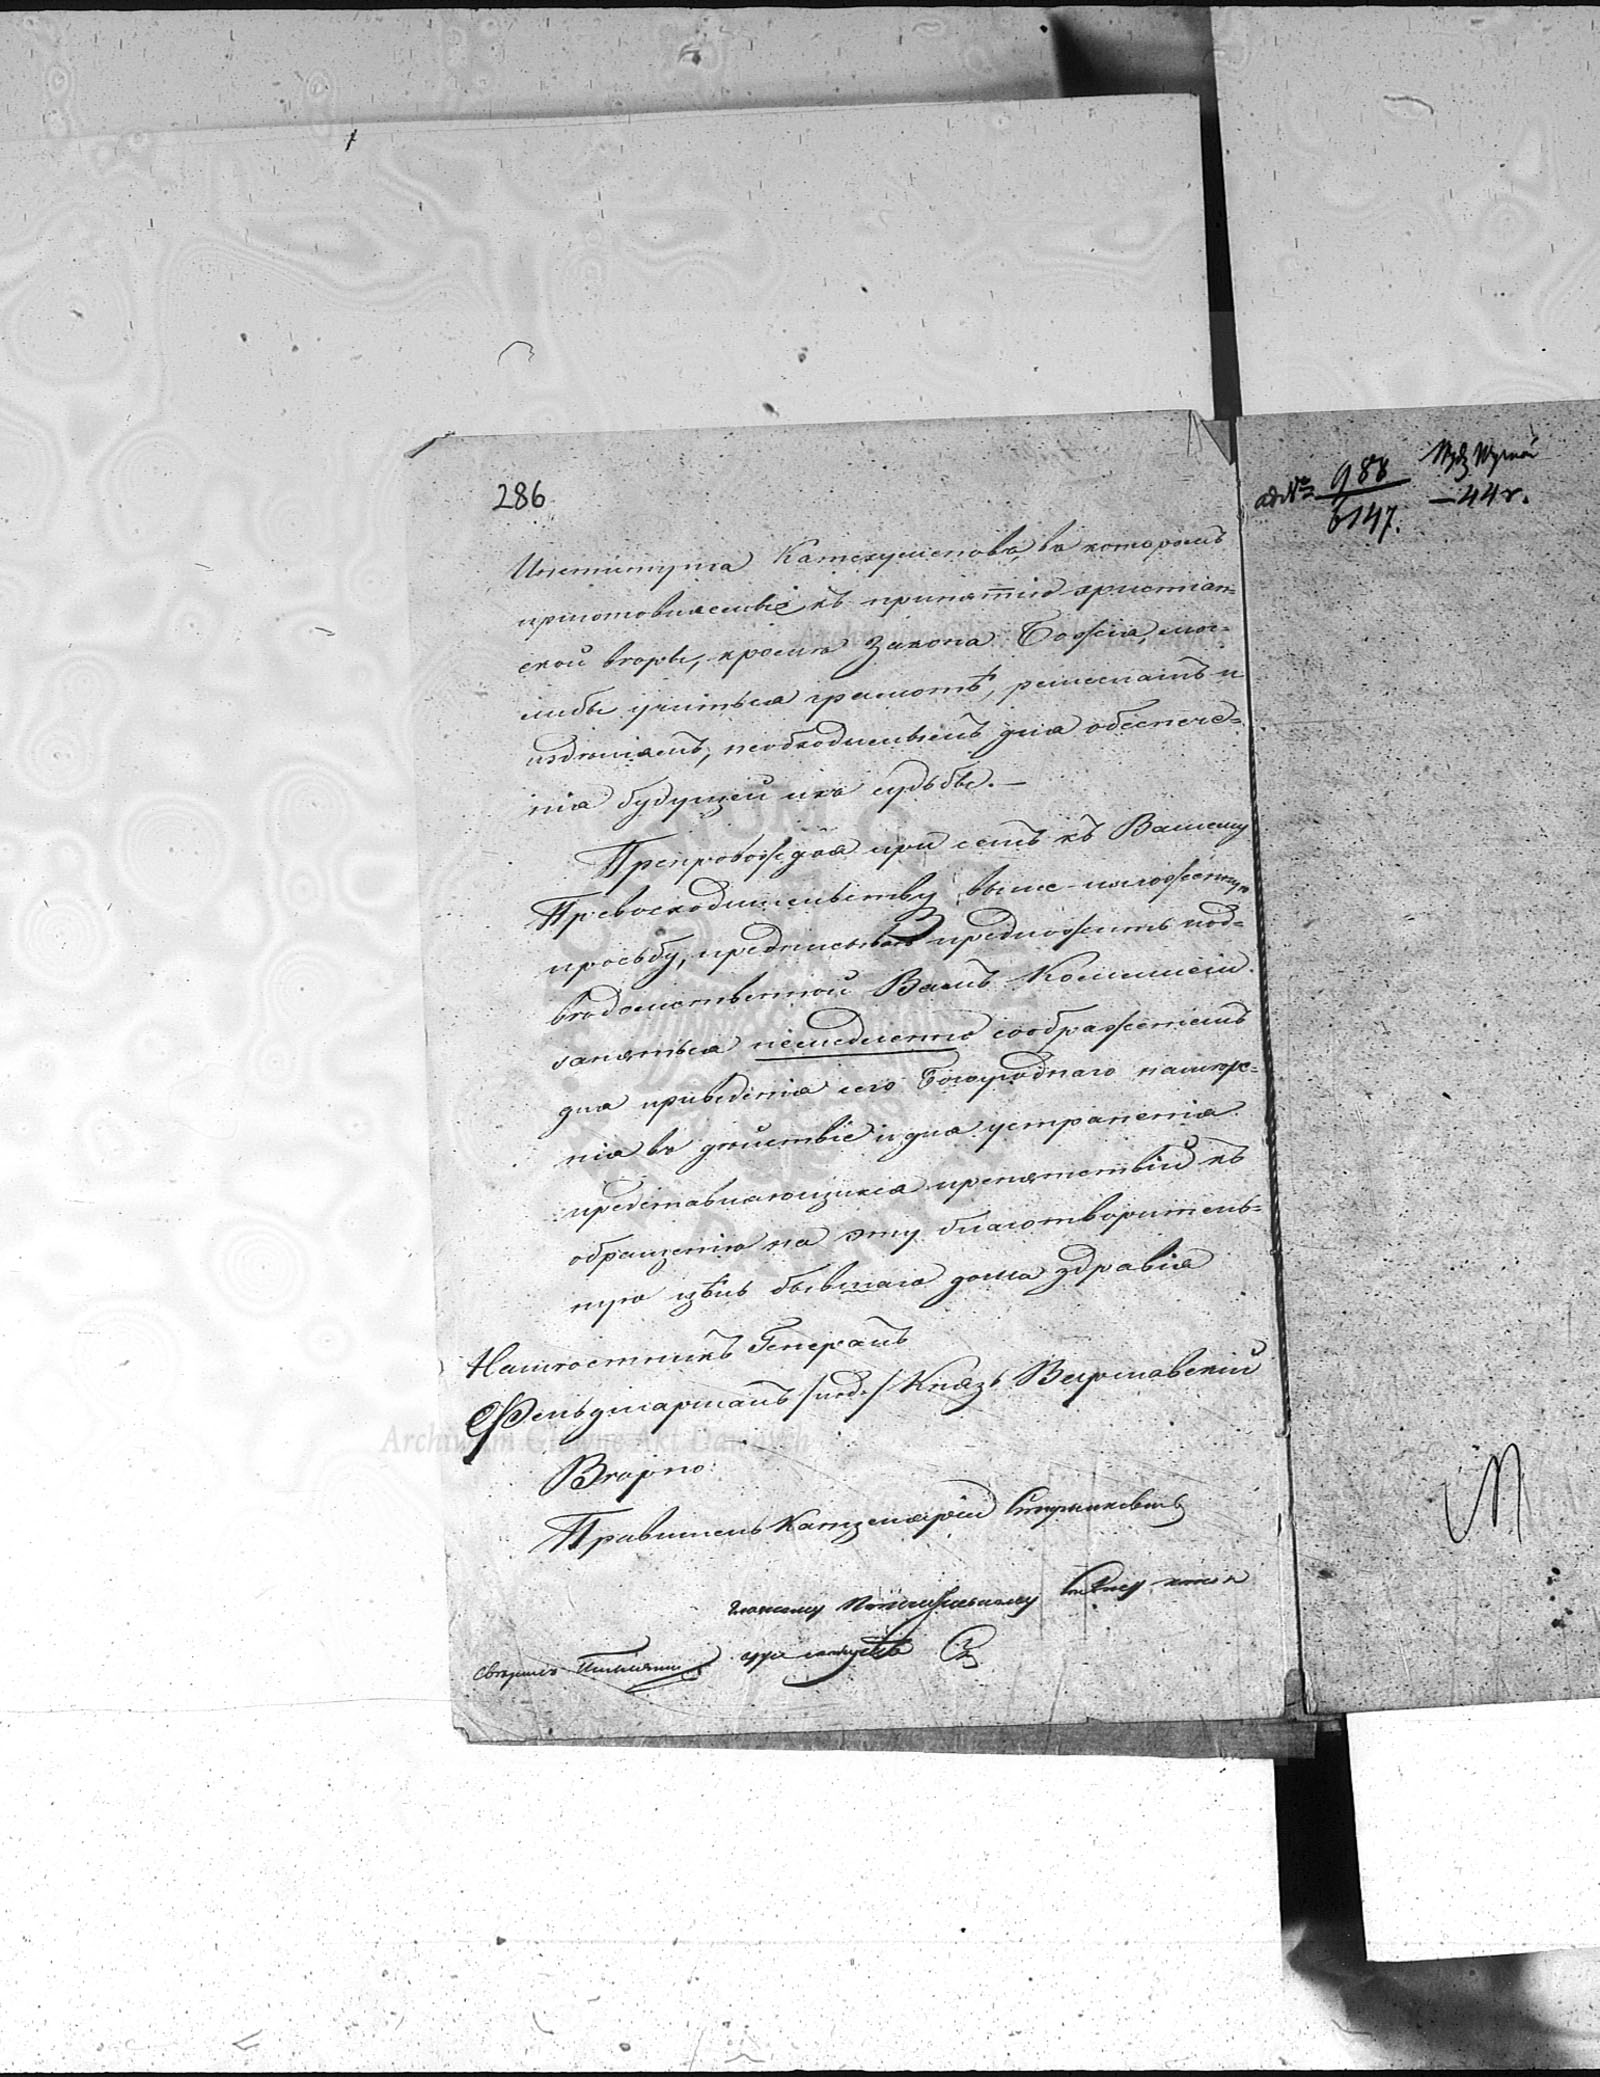 286
Института Катехуменовъ, въ которомъ
приготовляемые къ принятію христіан=
ской вѣры, кромѣ Закона Божія, мог=
либы учиться грамотѣ, ремесламъ и
издѣліямъ, необходимымъ для обеспече=
нія будущей ихъ судьбы. —
Препровождая при семъ къ Вашему
Превосходительству выше-изложенную
просьбу, предписываю предложить под=
вѣдомственной Вамъ Коммисіи
заняться немедленно соображеніемъ
для приведенія сего Богоугоднаго намѣре=
нія въ дѣйствіе и для устраненія
представляющихся препятствій къ
обращенію на эту благотворитель=
ную цѣль бывшаго дома здравія
Намѣстникъ Генералъ
Фельдмаршалъ /под./ Князь Варшавскій
Вѣрно:
Правитель Канцеляріи
Свѣрилъ
ad №= 988
6147.
— 44 r.
Archiwum Główne Akt Dawnych